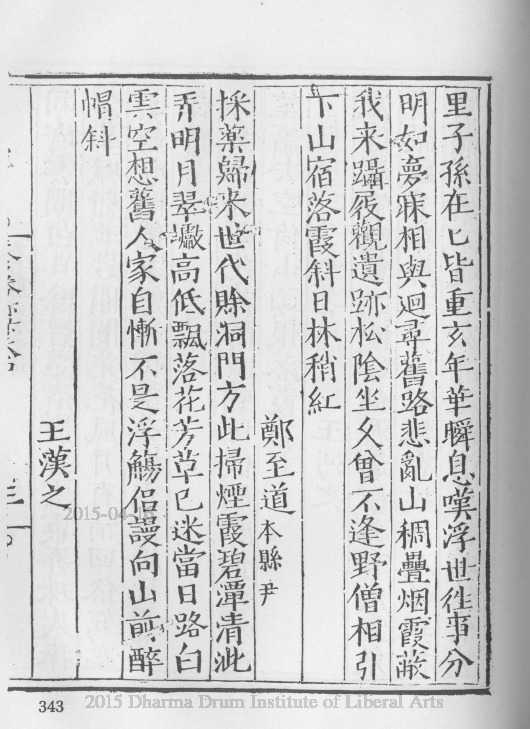 里子孫在亾皆重玄年華瞬息嘆浮世徃事分
明如夢寐相與迴尋舊路悲亂山稠疊烟霞蔽
我来躡屐觀遺跡松陰坐久曾不逢野僧相引
下山宿落霞斜日林稍紅
鄭至道本縣尹
採藥歸來世代賖洞門方此掃煙霞碧潭清泚
弄明月翠巘高低飄落花芳草已迷當日路白
雲空想舊人家自慚不是浮觴侣謾向山前醉
帽斜
王漢之
2015-04-16
343
2015 Dharma Drum Institute of Liberal Arts